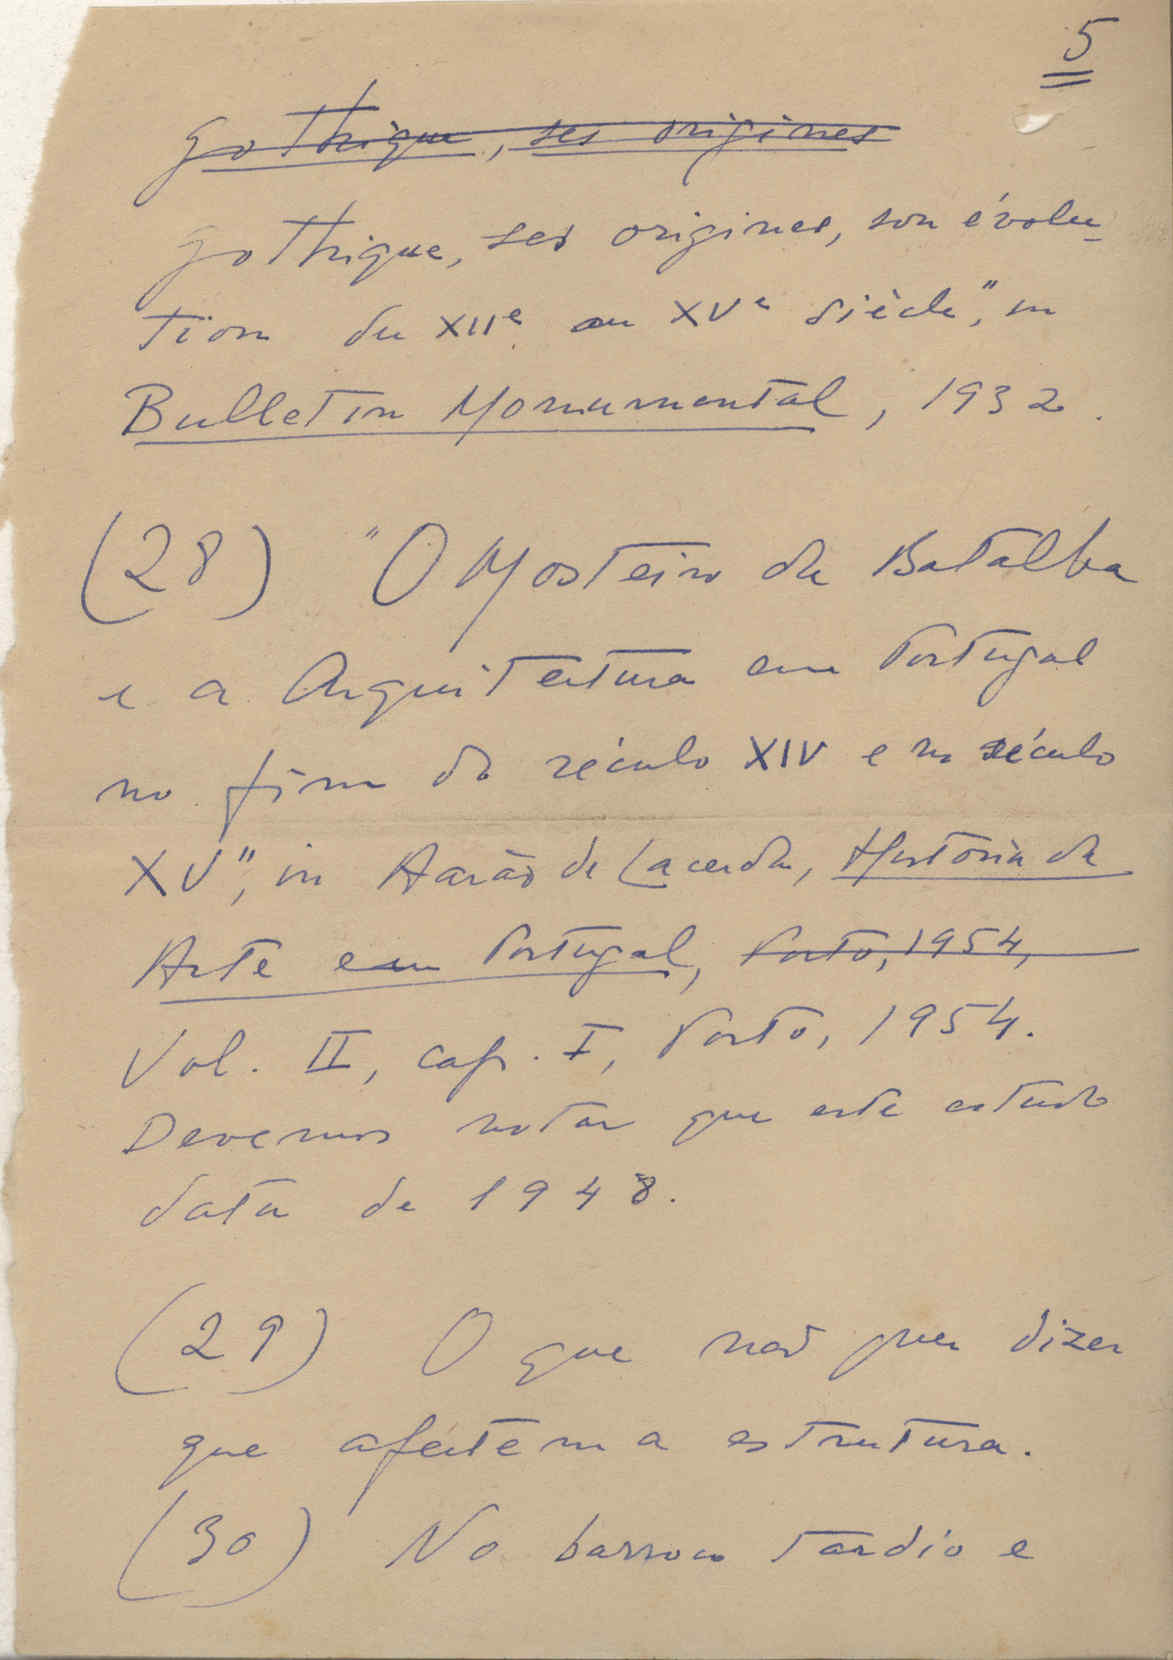 5
gothique, ses origines
gothique, ses origines, son évolu-
tion du XIIe au XVe siècle", in
Bulletin Monumental, 1932.
(28) "O Mosteiro da Batalha
e a Arquitectura em Portugal
no fim do século XIV e no século
XV", in Aarão de Lacerda, História da
Arte em Portugal, Porto, 1954,
Vol. II, cap. I, Porto, 1954.
Devemos notar que este estudo
data de 1948.
(29) O que não quer dizer
que afectem a estrutura.
(30) No barroco tardio e